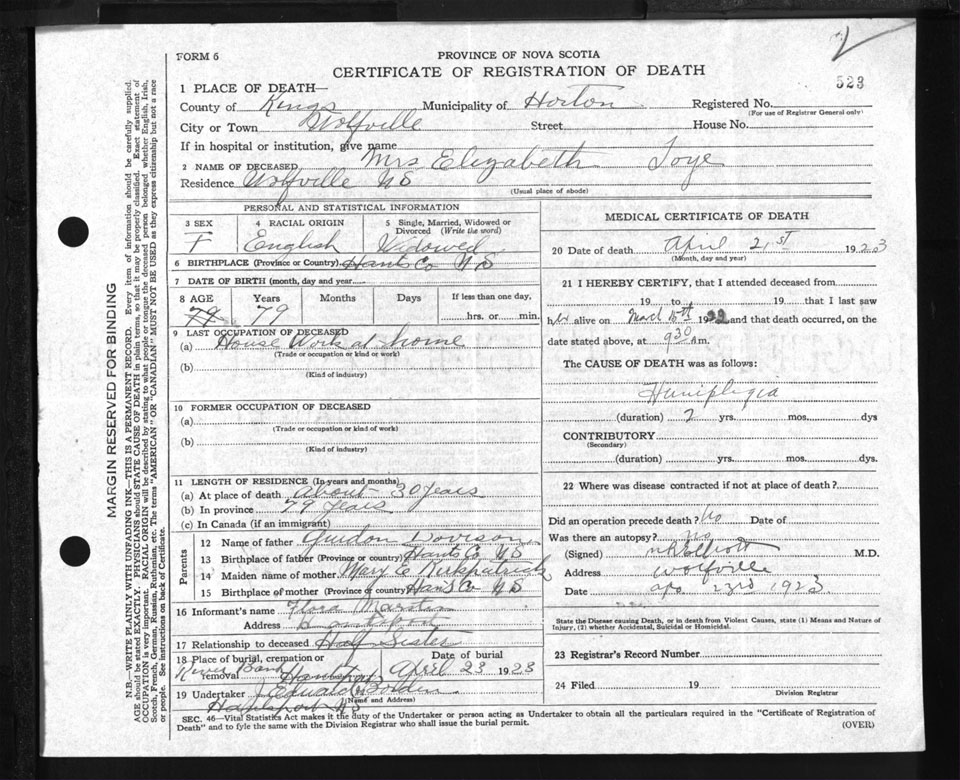 2
FORM 6
PROVINCE OF NOVA SCOTIA
CERTIFICATE OF REGISTRATION OF DEATH
523
1 PLACE OF DEATH—
County of Kings Municipality of Horton Registered No.
(For use of Registrar General only)
City or Town Wolfville Street House No.
If in hospital or institution, give name
2 NAME OF DECEASED Mrs Elizabeth Toye
Residence Wolfville NS
(Usual place of abode)
PERSONAL AND STATISTICAL INFORMATION
3 SEX 4 RACIAL ORIGIN 5 Single, Married, Widowed or Divorced (Write the word)
F English Widowed
6 BIRTHPLACE (Province or Country) Hants Co NS
7 DATE OF BIRTH (month, day and year)
8 AGE Years Months Days If less than one day,
79 79 hrs. or min.
9 LAST OCCUPATION OF DECEASED
(a) House Work at home
(Trade or occupation or kind or work)
(b)
(Kind of industry)
10 FORMER OCCUPATION OF DECEASED
(a)
(Trade or occupation or kind of work)
(b)
(Kind of industry)
11 LENGTH OF RESIDENCE (In years and months)
(a) At place of death about 30 years
(b) In province 79 years
(c) In Canada (if an immigrant)
Parents
12 Name of father Davison
13 Birthplace of father (Province or country) Hants Co NS
14 Maiden name of mother Mary E Kirkpatrick
15 Birthplace of mother (Province or country) Hants Co NS
16 Informant's name Flora
Address
17 Relationship to deceased Half Sister
18 Place of burial, cremation or removal Date of burial
River Bank Hantsport April 23 1923
19 Undertaker
(Name and Address)
Hantsport NS
MEDICAL CERTIFICATE OF DEATH
20 Date of death April 21st 1923
(Month, day and year)
21 I HEREBY CERTIFY, that I attended deceased from
19 to 19 that I last saw
her alive on March 15th 1922 and that death occurred, on the
date stated above, at 9 30 A m.
The CAUSE OF DEATH was as follows:
Hemiplegia
(duration) 2 yrs. mos. dys
CONTRIBUTORY
(Secondary)
(duration) yrs. mos. dys.
22 Where was disease contracted if not at place of death?
Did an operation precede death? No Date of
Was there an autopsy? No
(Signed) Elliott M.D.
Address Wolfville
Date Apr 23rd 1923
State the Disease causing Death, or in death from Violent Causes, state (1) Means and Nature of
Injury, (2) whether Accidental, Suicidal or Homicidal.
23 Registrar's Record Number
24 Filed 19
Division Registrar
SEC. 46—Vital Statistics Act makes it the duty of the Undertaker or person acting as Undertaker to obtain all the particulars required in the "Certificate of Registration of
Death" and to fyle the same with the Division Registrar who shall issue the burial permit. (OVER)
MARGIN RESERVED FOR BINDING
N.B.—WRITE PLAINLY WITH UNFADING INK—THIS IS A PERMANENT RECORD. Every item of information should be carefully supplied.
AGE should be stated EXACTLY. PHYSICIANS should STATE CAUSE OF DEATH in plain terms, so that it may be properly classified. Exact statement of
OCCUPATION is very important. RACIAL ORIGIN will be described by stating to what people or tongue the deceased person belonged, whether English, Irish,
Scotch, French, German, Russian, Ruthenian, etc. The terms "AMERICAN" OR "CANADIAN" MUST NOT BE USED as they express citizenship but not a race
or people. See instructions on back of Certificate.